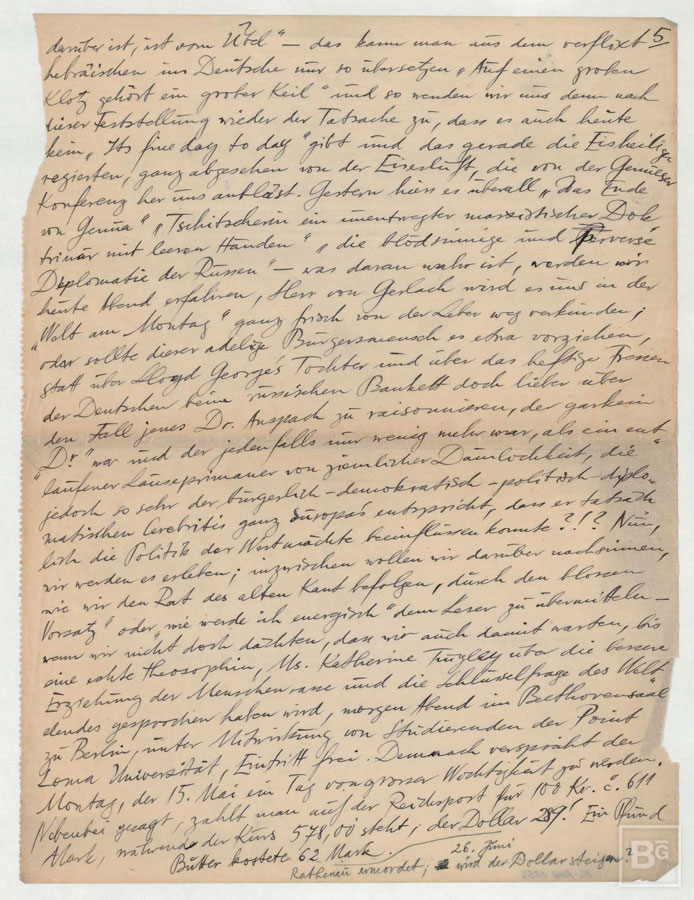 5
darüber ist, ist vom Übel" — das kann man aus dem verflixt
hebräischen ins Deutsche nur so übersetzen „Auf einen groben
Klotz gehört ein grober Keil" und so wenden wir uns denn nach
dieser Feststellung wieder der Tatsache zu, dass es auch heute
kein „Its fine day to day" gibt und das gerade die Eisheiligen
regierten, ganz abgesehen von der Eisesluft, die von der Genueser
Konferenz her uns anbläst. Gestern hiess es überall „Das Ende
von Genua" „Tschitscherin ein unentwegter marxistischer Dok
trinär mit leeren Händen" „die blödsinnige und Perverse
Diplomatie der Russen" — was daran wahr ist, werden wir
heute Abend erfahren, Herr von Gerlach wird es uns in der
„Welt am Montag" ganz frisch von der Leber weg verkünden;
oder sollte dieser adelige Bürgersmensch es etwa vorziehen,
statt über Lloyd George's Tochter und über das heftige Fressen
der Deutschen beim russischen Bankett doch lieber über
den Fall jenes Dr. Anspach zu raisonnieren, der garkein
„Dr" war und der jedenfalls nur wenig mehr war, als ein ent
laufener Lauseprimaner von ziemlicher Dämlichkeit, die
jedoch so sehr der bürgerlich-demokratisch-politisch-diplo-
matischen Cerebritis ganz Europas entspricht, dass er tatsäch
lich die Politik der Westmächte beeinflussen konnte?!? Nun,
wir werden es erleben; inzwischen wollen wir darüber nachsinnen,
wie wir den Rat des alten Kant befolgen, „durch den blossen
Vorsatz" oder „wie werde ich energisch" dem Leser zu übermitteln —
wenn wir nicht doch dächten, dass wir auch damit warten, bis
eine echte Theosophin, Ms. Katherine Tingley über die bessere
Erziehung der Menschenrasse und die Schlüsselfrage des Welt
elendes gesprochen haben wird, morgen Abend im Beethovensaal
zu Berlin, unter Mitwirkung von Studierenden der Point
Loma Universität, Eintritt frei. Demnach verspricht der
Montag, der 15. Mai ein Tag von grosser Wichtigkeit zu werden.
Nebenbei gesagt, zahlt man auf der Reichspost für 100 Kr. č. 611
Mark, während der Kurs 578,00 steht; der Dollar 289! Ein Pfund
Butter kostete 62 Mark.
26. Juni
Rathenau ermordet; wird der Dollar steigen?
BG